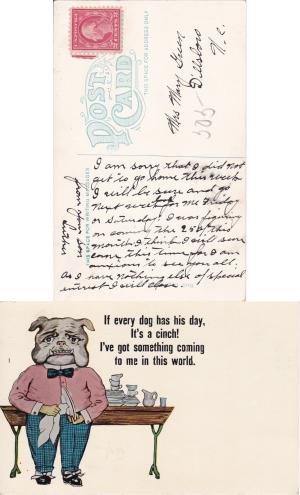 POST CARD
THIS SPACE FOR ADDRESS ONLY
Mrs Mary Green
Dillsboro
N.C.
THIS SPACE FOR WRITING MESSAGES
I am sorry that I did not
get to go home this week
I will be sure and go
next week look for me Friday
or Saturday I was figuring
on coming the 25th this
month I think I will sure
come this time for I am
anxious to see you all.
As I have nothing else of special
interest I will close
from your son
If every dog has his day,
It's a cinch!
I've got something coming
to me in this world.